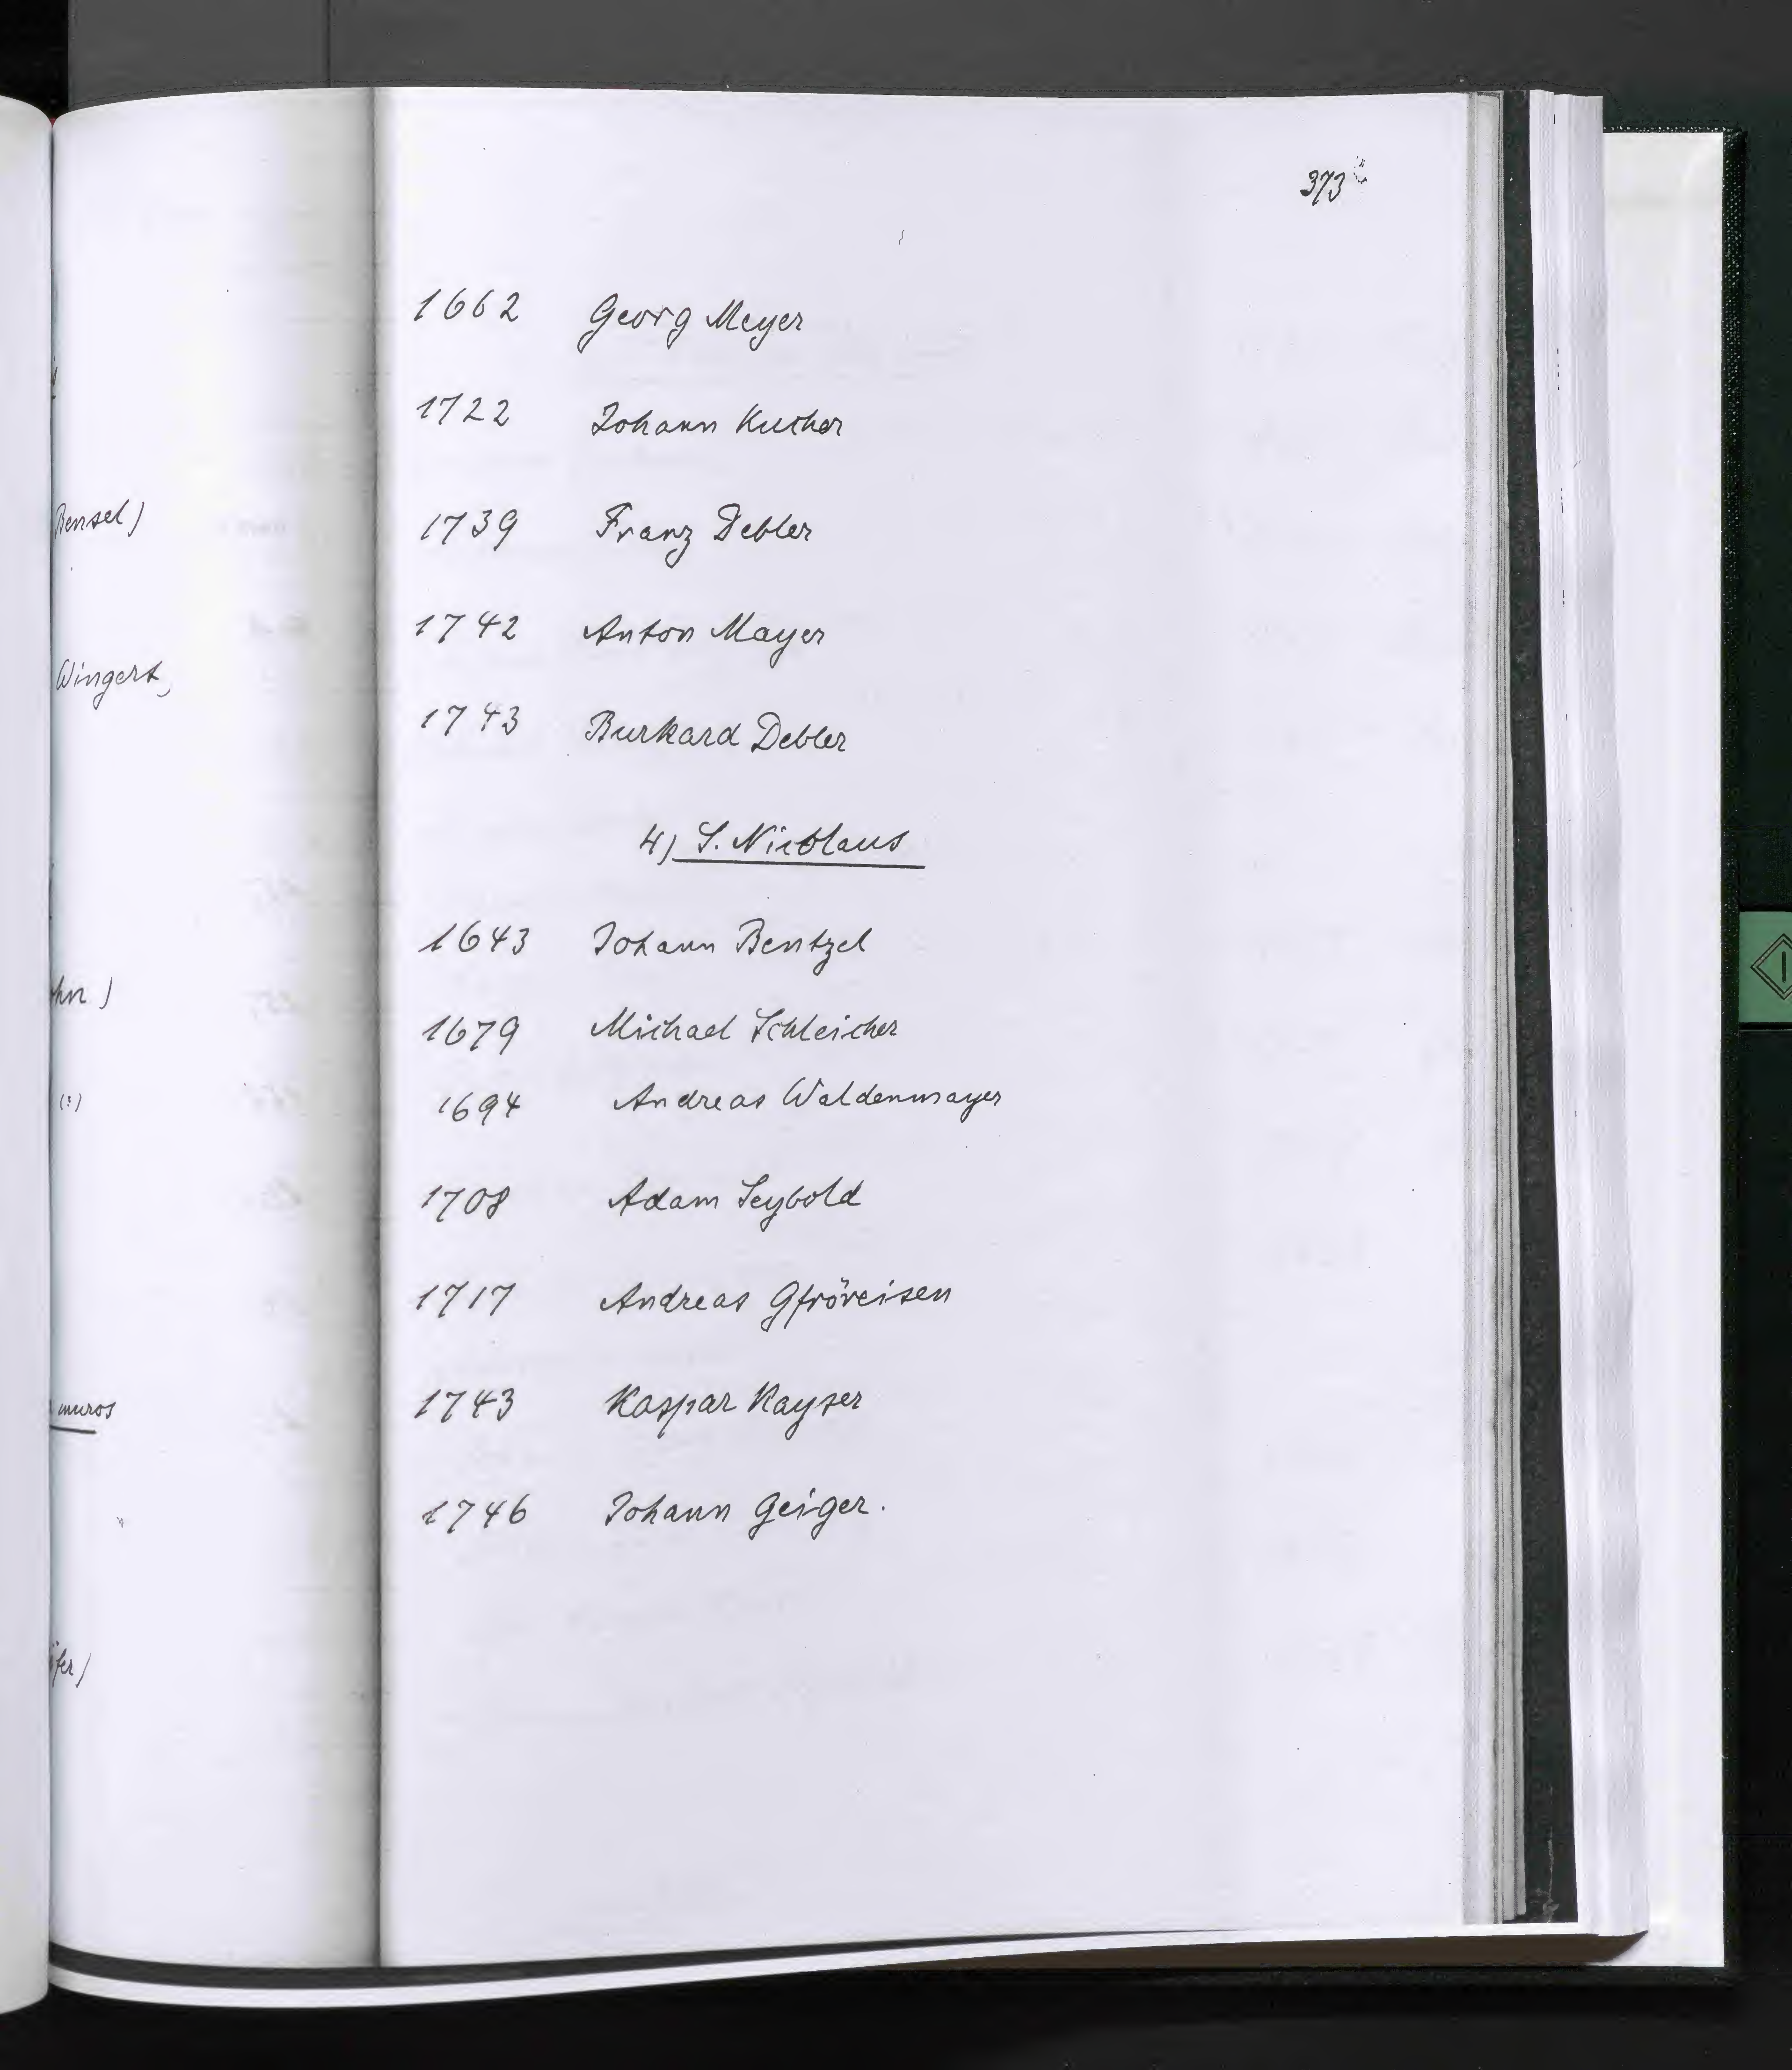 Bensel)
Wingert,
muros
373
1662 Georg Meyer
1722 Johann Kucher
1739 Franz Debler
1742 Anton Mayer
1743 Burkard Debler
4) S. Nicolaus
1643 Johann Bentzel
1679 Michael Schleicher
1694 Andreas Waldenmayer
1708 Adam Seybold
1717 Andreas Gfröreisen
1743 Kaspar Kayser
1746 Johann Geiger.